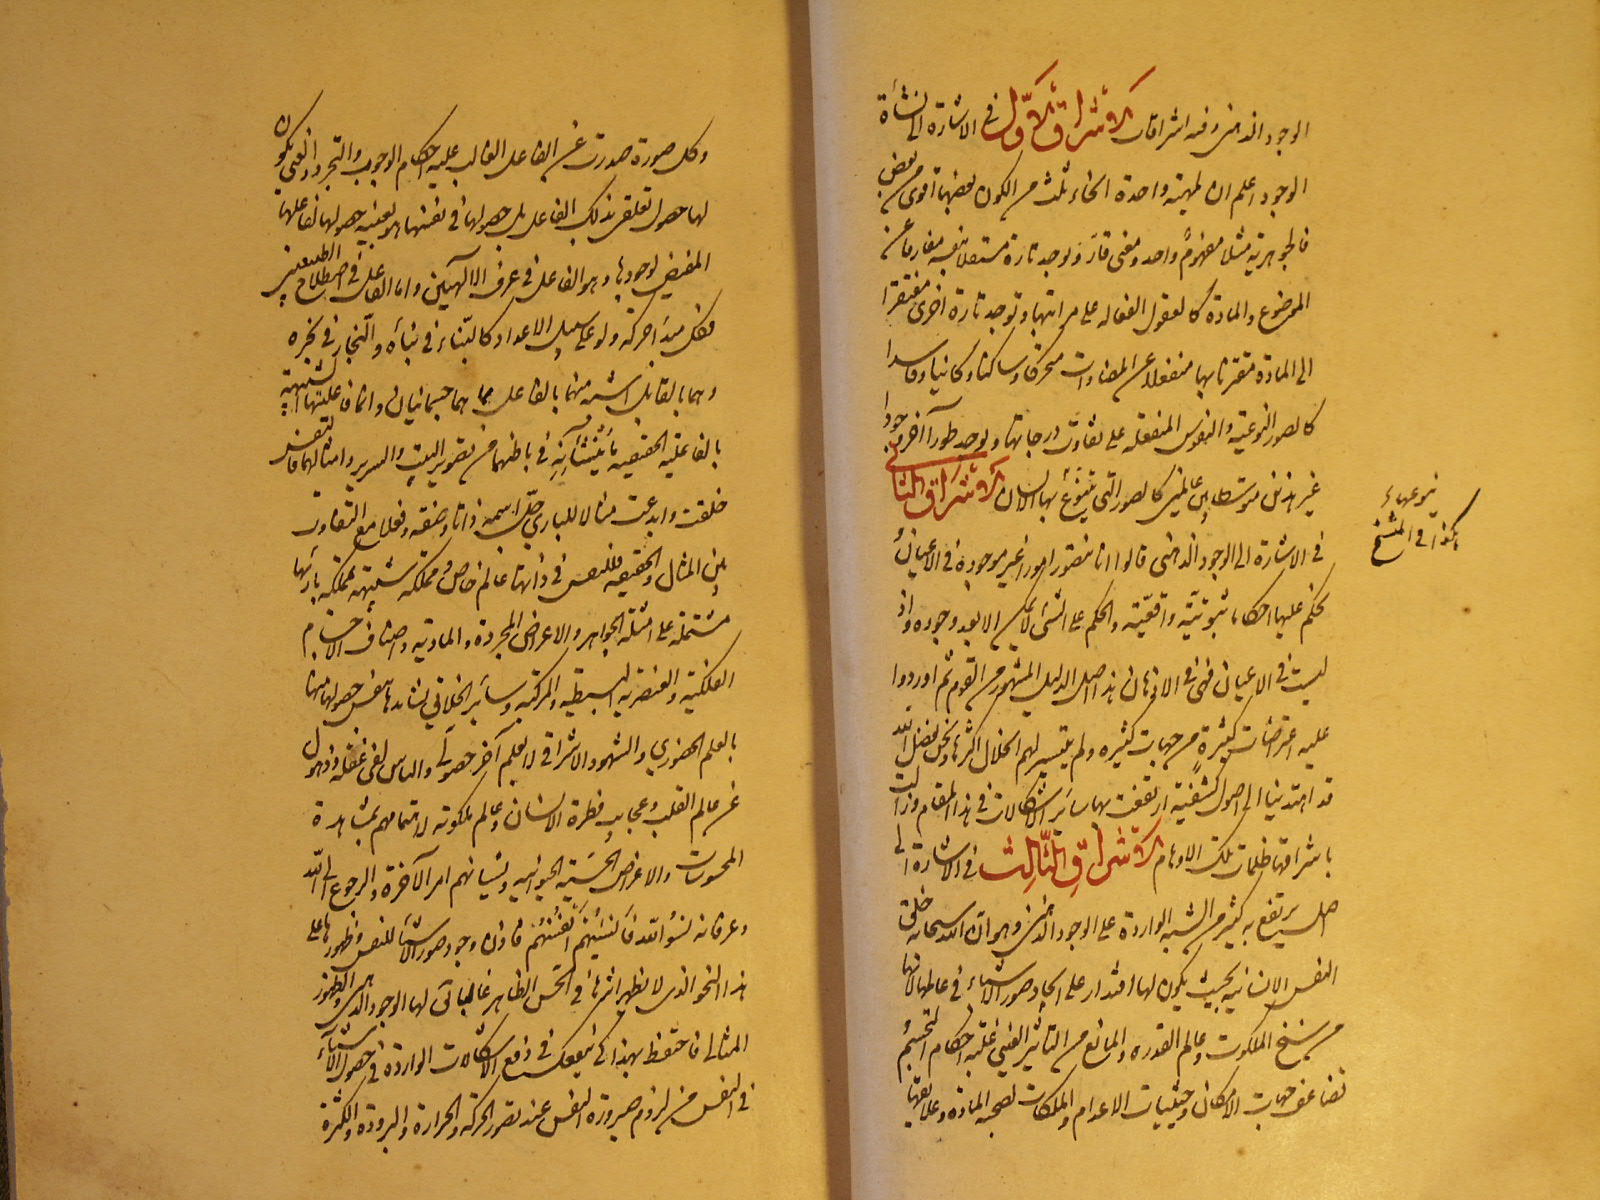 الوجود الذهنى وفيه اشراقات الاشراق الاول فى الاشارة الى نشأة
الوجود اعلم ان لمهية واحدة انحاء ثلث من الكون بعضها اقوى من بعض
فالجوهرية مثلا مفهوم واحد ومعنى فارد يوجد تارة مستقلا بنفسه مفارقا عن
الموضوع والمادة كالعقول الفعاله على مراتبها ويوجد تارة اخرى مفتقرا
الى المادة مقترنا بها منفعلا عن المضادات متحركا وساكنا وكائنا وفاسدا
كالصور النوعية والنفوس المنفعله على تفاوت درجاتها ويوجد طورا آخر وجودا
غير هذين متوسطا بين عالمين كالصور التى يتنوع بها الانسان الاشراق الثانى
فى الاشارة الى الوجود الذهنى قالوا انا نتصور امورا غير موجودة فى الاعيان
نحكم عليها احكاما ثبوتية واقعية والحكم على الشئ لا يمكن الا بعد وجوده واذ
ليست فى الاعيان فهى فى الاذهان هذا اصل الدليل المشهور من القوم ثم اوردوا
عليه اعتراضات كثيرة من جهات كثيره ولم يتيسر لهم انحلال اكثرها ونحن بفضل الله
قد اهتدينا الى اصول كشفية ارتفعت بها سائر الاشكالات فى هذا المقام وزالت
باشراقها ظلمات تلك الاوهام الاشراق الثالث فى الاشارة الى
اصل يرتفع به كثير من الشبه الواردة على الوجود الذهنى وهو ان الله سبحانه خلق
النفس الانسانيه بحيث يكون لها اقتدار على ايجاد صور الاشياء فى عالمها لانها
من سنخ الملكوت وعالم القدره والمانع من التاثير العينى غلبة احكام التجسم
تضاعف جهات الامكان وحيثيات الاعدام والملكات لصحبه المادة وعلائقها
هكذا فى النسخ
وكل صورة صدرت عن الفاعل الغالب عليه احكام الوجوب والتجرد والغنى يكون
لها حصول تعلقى بذلك الفاعل بل حصولها فى نفسها هو بعينه حصولها لفاعلها
المفيض لوجودها وهو الفاعل فى عرف الالهيين واما الفاعل فى اصطلاح الطبيعيين
فكل مبدأ حركة ولو على سبيل الاعداد كالبناء فى بنائه والنجار فى نجره
وهما بالقابل اشبه منهما بالفاعل بما هما جسمانيان وانما فاعليتهما الشبيهة
بالفاعلية الحقيقيه ما ينشأنه فى باطنهما من تصوير البيت والسرير وامثالهما فالنفس
خلقت وابدعت مثالا للباري جل اسمه ذاتا وصفة وفعلا مع التفاوت
بين المثال والحقيقه فللنفس فى ذاتها عالم خاص ومملكة شبيهة بمملكة بارئها
مشتملة على امثلة الجواهر والاعراض المجردة والمادية واصناف الاجسام
الفلكية والعنصرية البسيطة والمركبة وسائر الخلائق تشاهدها بنفس حصولها منها
بالعلم الحضوري والشهود الاشراقى لا بعلم آخر حصولى والناس لفى غفلة وذهول
عن عالم القلب وعجايب فطرة الانسان وعالم ملكوته لاهتمامهم بمشاهدة
المحسوسات والاغراض الحسية الحيوانية ونسيانهم امر الآخرة والرجوع الى الله
وعرفانه نسوا الله فانسيهم انفسهم فاذن وجود صور الاشياء للنفس وظهورها على
هذا النحو الذى لا يظهر اثرها فى الحس الظاهر غالبا يسمى لها الوجود الذهنى والظهور
المثالى فاحتفظ بهذا كى ينفعك فى دفع الاشكالات الواردة فى حصول الاشياء
فى النفس من لزوم صيرورة النفس عند تصور الحركة والحرارة والبرودة والكثرة